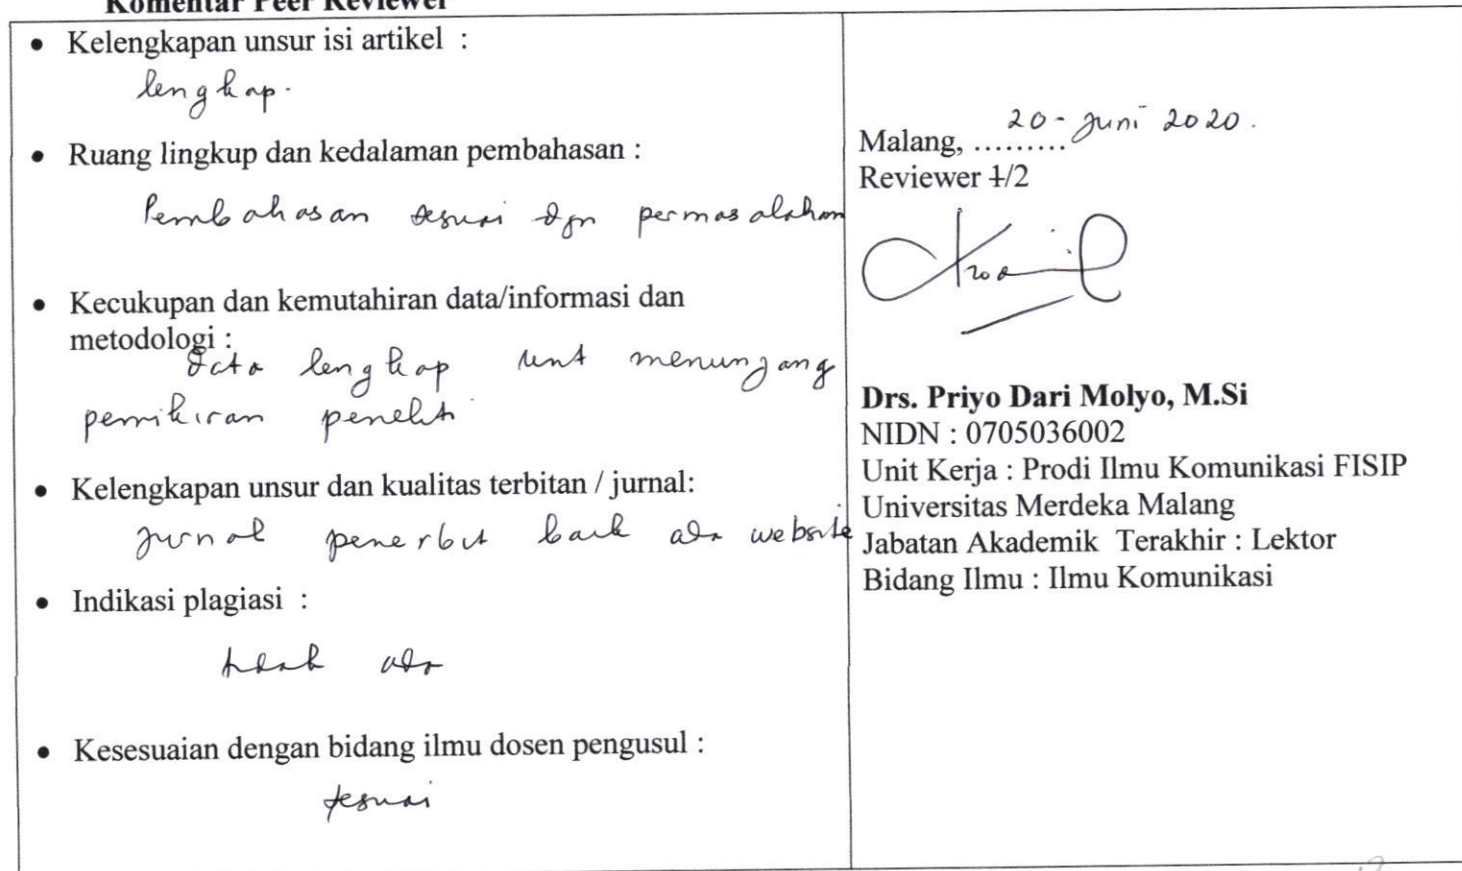 Komentar Peer Reviewer
• Kelengkapan unsur isi artikel :
lengkap.
• Ruang lingkup dan kedalaman pembahasan :
Pembahasan sesuai dgn permasalahan
• Kecukupan dan kemutahiran data/informasi dan
metodologi :
Data lengkap unt menunjang
pemikiran peneliti
• Kelengkapan unsur dan kualitas terbitan / jurnal:
Jurnal penerbit baik ada website
• Indikasi plagiasi :
tidak ada
• Kesesuaian dengan bidang ilmu dosen pengusul :
sesuai
Malang, ......... 20 - Juni 2020.
Reviewer 1/2
Drs. Priyo Dari Molyo, M.Si
NIDN : 0705036002
Unit Kerja : Prodi Ilmu Komunikasi FISIP
Universitas Merdeka Malang
Jabatan Akademik Terakhir : Lektor
Bidang Ilmu : Ilmu Komunikasi